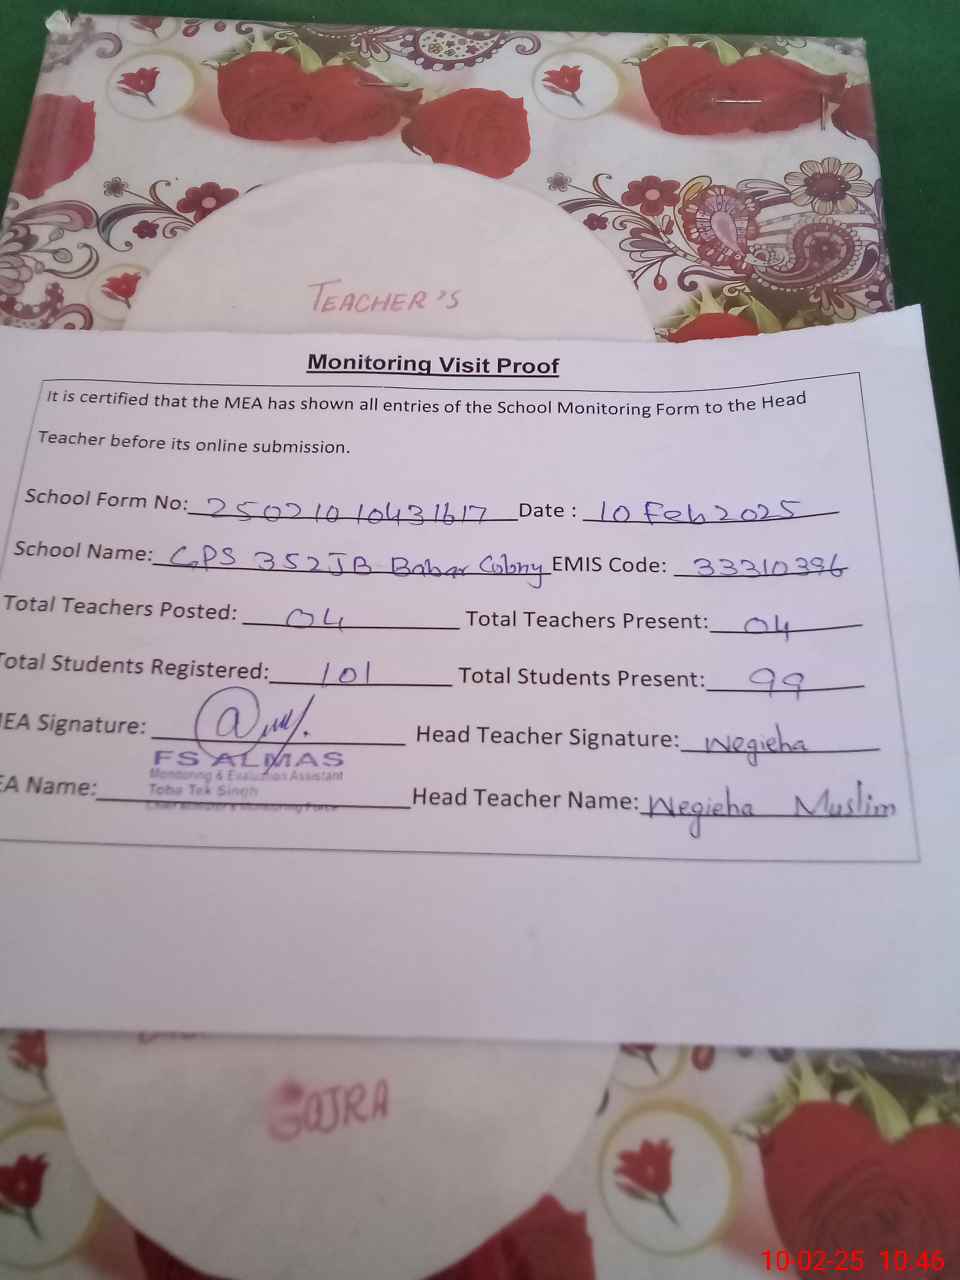 TEACHER'S
Monitoring Visit Proof
It is certified that the MEA has shown all entries of the School Monitoring Form to the Head
Teacher before its online submission.
School Form No: 25021010431617 Date : 10 Feb 2025
School Name: GPS 352JB Babar Colony EMIS Code: 33310396
Total Teachers Posted: 04 Total Teachers Present: 04
Total Students Registered: 101 Total Students Present: 99
MEA Signature: Head Teacher Signature: Wegieha
FS ALMAS
Monitoring & Evaluation Assistant
Toba Tek Singh
EA Name: Head Teacher Name: Wegieha Muslim
GOJRA
10-02-25 10:46